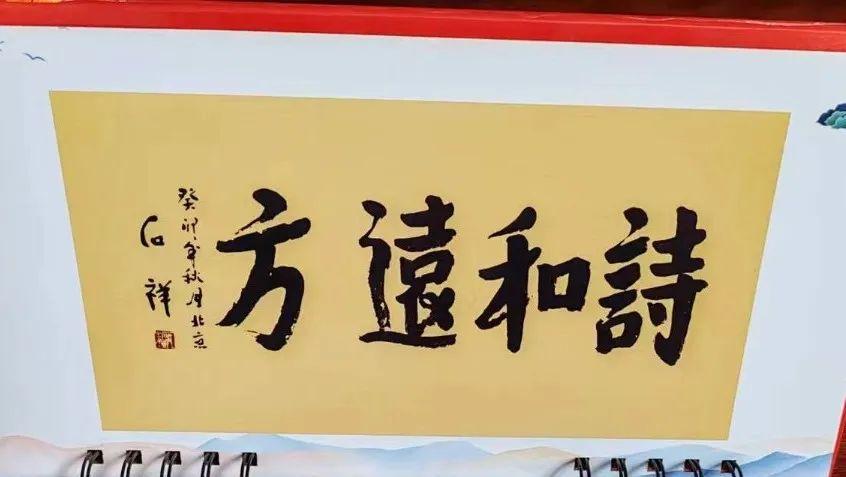 詩和遠方
癸卯年秋月北京
石祥